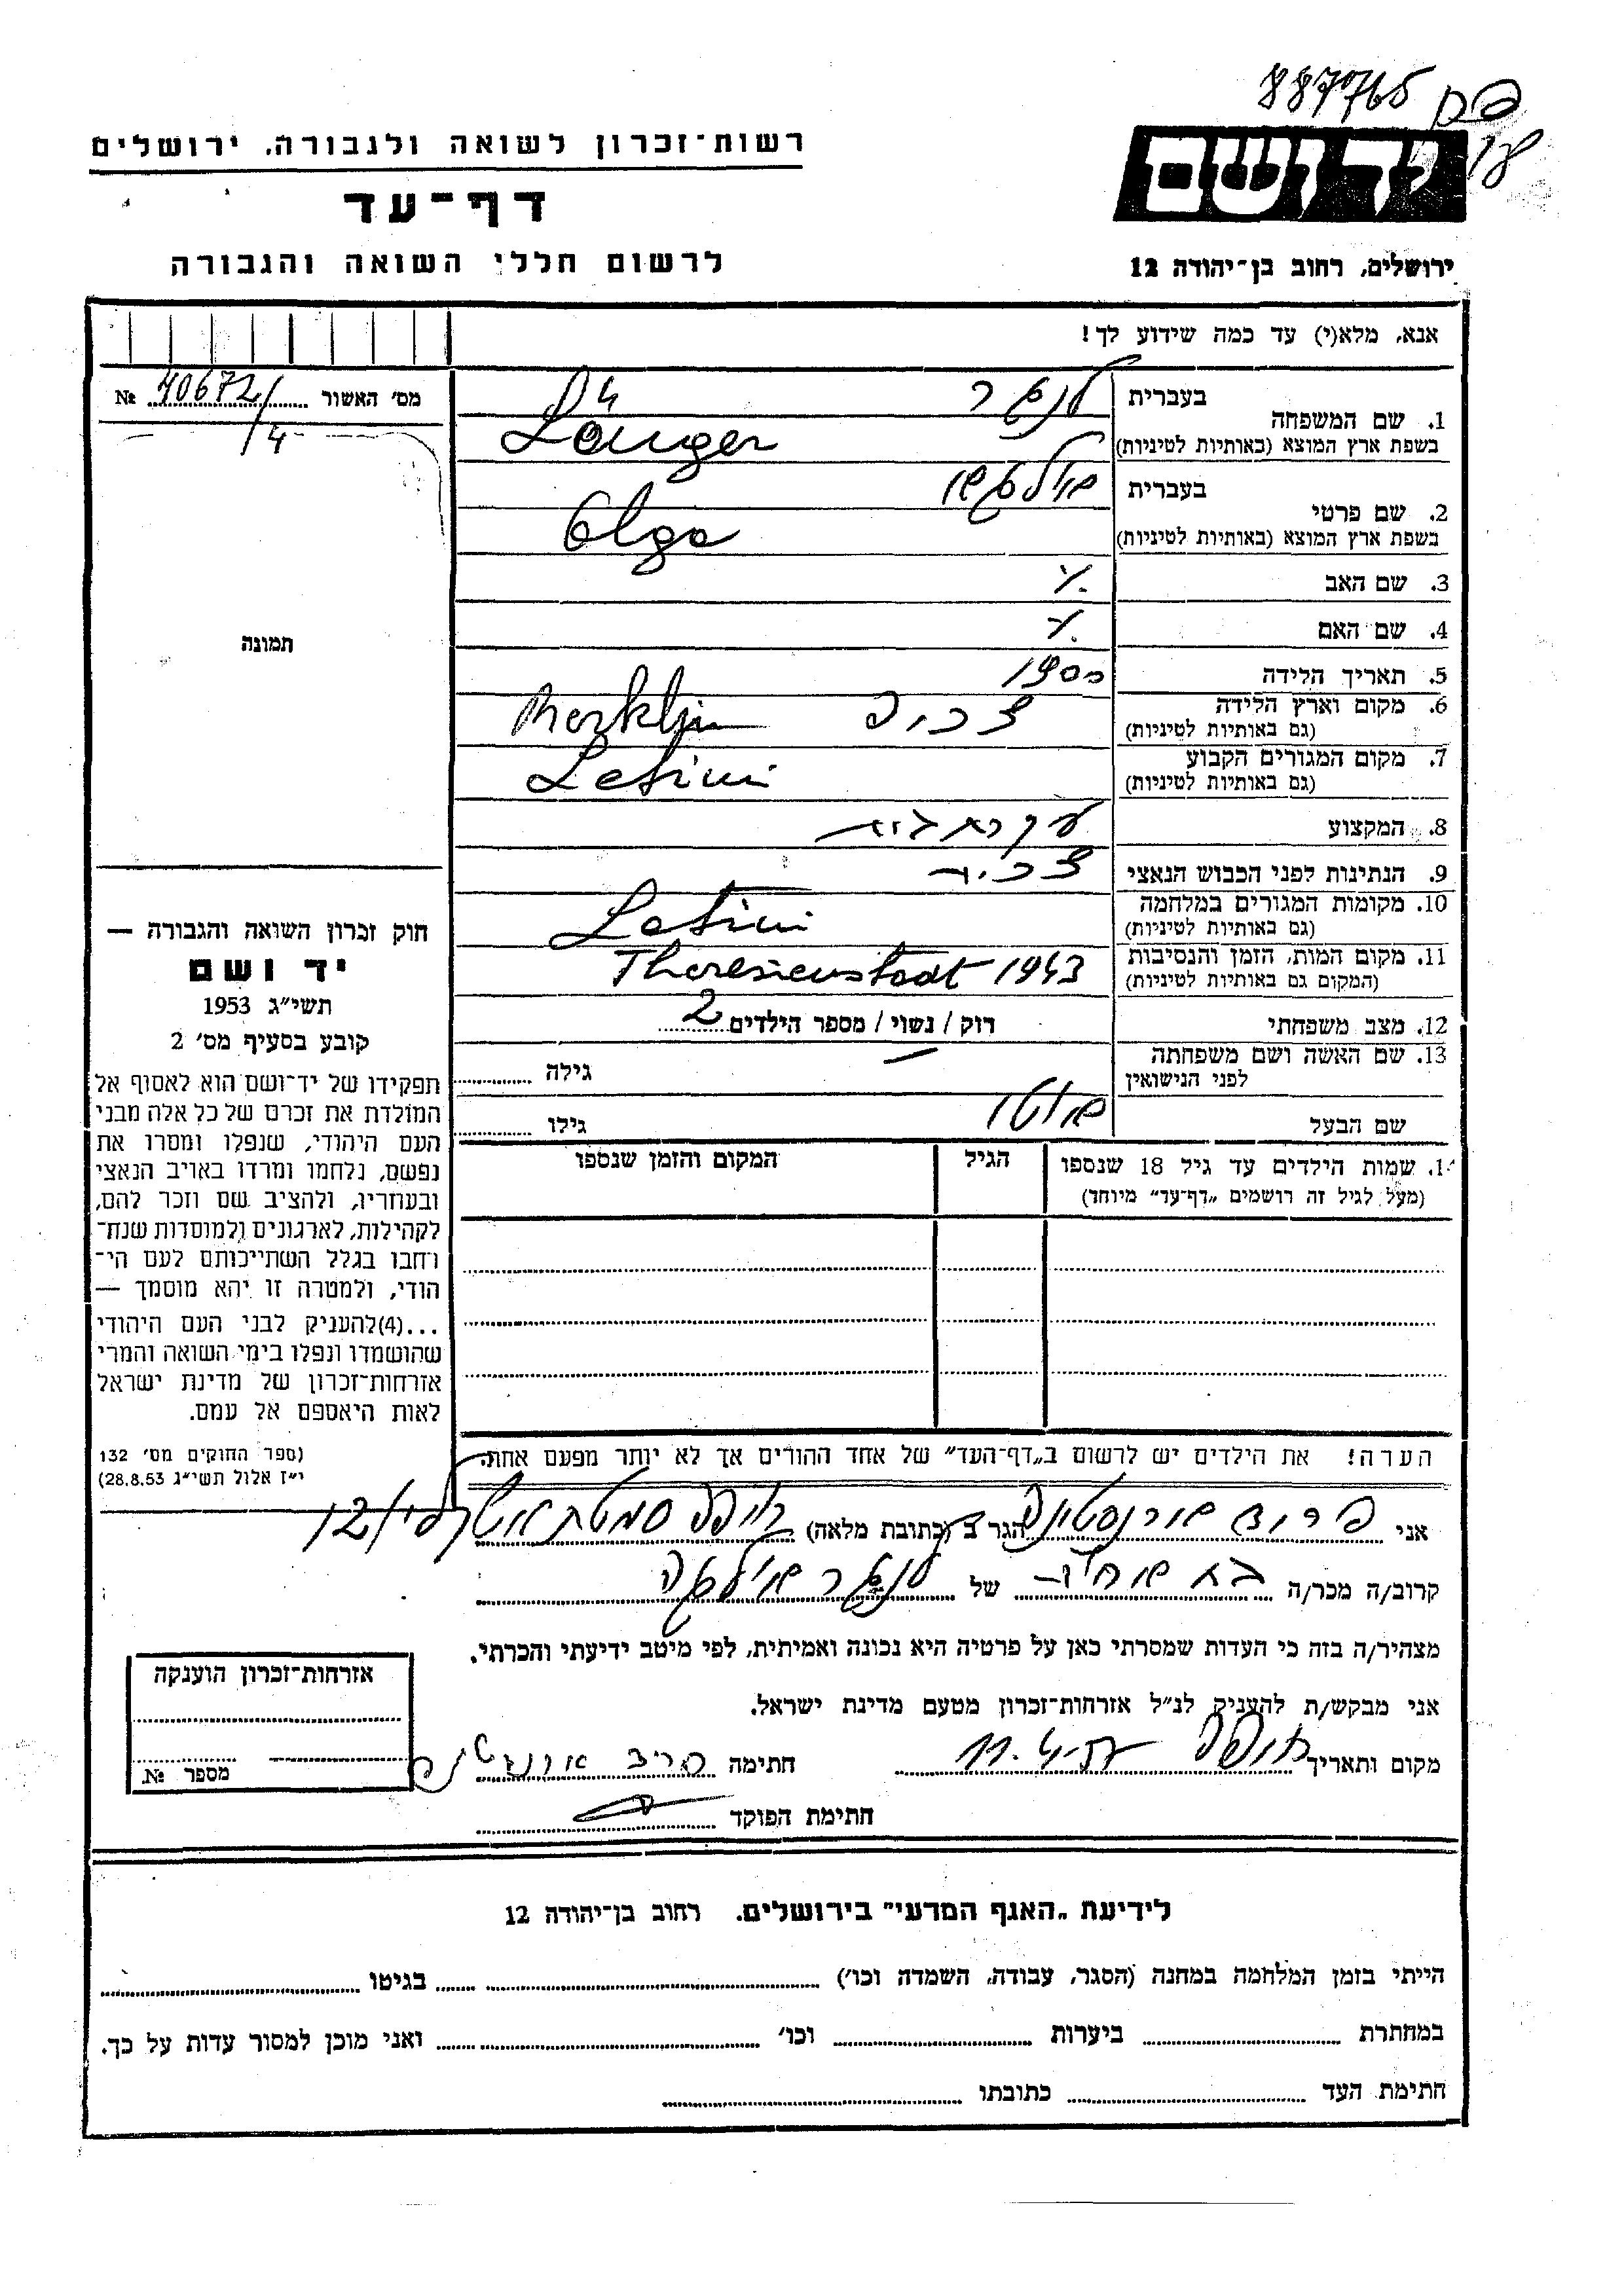 887765
רשות־זכרון לשואה ולגבורה, ירושלים
יד ושם
דף־עד
לרשום חללי השואה והגבורה
ירושלים, רחוב בן־יהודה 12
אנא, מלא(י) עד כמה שידוע לך!
מס׳ האשור 40672/4 №
תמונה
1. שם המשפחה
בעברית לנגר
בשפת ארץ המוצא (באותיות לטיניות) Langer
2. שם פרטי
בעברית
בשפת ארץ המוצא (באותיות לטיניות) Olga
3. שם האב ־/.
4. שם האם ־/.
5. תאריך הלידה 1900
6. מקום וארץ הלידה
(גם באותיות לטיניות) צכיה
7. מקום המגורים הקבוע
(גם באותיות לטיניות) Letini
8. המקצוע עקרת בית
9. הנתינות לפני הכבוש הנאצי צכית
10. מקומות המגורים במלחמה
(גם באותיות לטיניות) Letini
11. מקום המות, הזמן והנסיבות
(המקום גם באותיות לטיניות) Theresienstadt 1943
12. מצב משפחתי רוק / נשוי / מספר הילדים 2
13. שם האשה ושם משפחתה
לפני הנישואין גילה
שם הבעל אוטו גילו
1. שמות הילדים עד גיל 18 שנספו
(מעל לגיל זה רושמים „דף־עד״ מיוחד)
הגיל
המקום והזמן שנספו
הערה! את הילדים יש לרשום ב„דף־העד״ של אחד ההורים אך לא יותר מפעם אחת.
חוק זכרון השואה והגבורה —
יד ושם
תשי״ג 1953
קובע בסעיף מס׳ 2
תפקידו של יד־ושם הוא לאסוף אל
המולדת את זכרם של כל אלה מבני
העם היהודי, שנפלו ומסרו את
נפשם, נלחמו ומרדו באויב הנאצי
ובעוזריו, ולהציב שם וזכר להם,
לקהילות, לארגונים ולמוסדות שנח־
רחבו בגלל השתייכותם לעם הי־
הודי, ולמטרה זו יהא מוסמך —
...(4)להעניק לבני העם היהודי
שהושמדו ונפלו בימי השואה והמרי
אזרחות־זכרון של מדינת ישראל
לאות היאספם אל עמם.
(ספר החוקים מס׳ 132
י״ז אלול תשי״ג 28.8.53)
אני הגר ב (כתובת מלאה) חיפה סמטת 12
קרוב/ה מכר/ה של לנגר אולגה
מצהיר/ה בזה כי העדות שמסרתי כאן על פרטיה היא נכונה ואמיתית, לפי מיטב ידיעתי והכרתי.
אני מבקש/ת להעניק לנ״ל אזרחות־זכרון מטעם מדינת ישראל.
מקום ותאריך חיפה חתימה
חתימת הפוקד
אזרחות־זכרון הוענקה
מספר №.
לידיעת „האגף המדעי״ בירושלים. רחוב בן־יהודה 12
הייתי בזמן המלחמה במחנה (הסגר, עבודה, השמדה וכו׳) בגיטו
במחתרת ביערות וכו׳ ואני מוכן למסור עדות על כך.
חתימת העד כתובתו